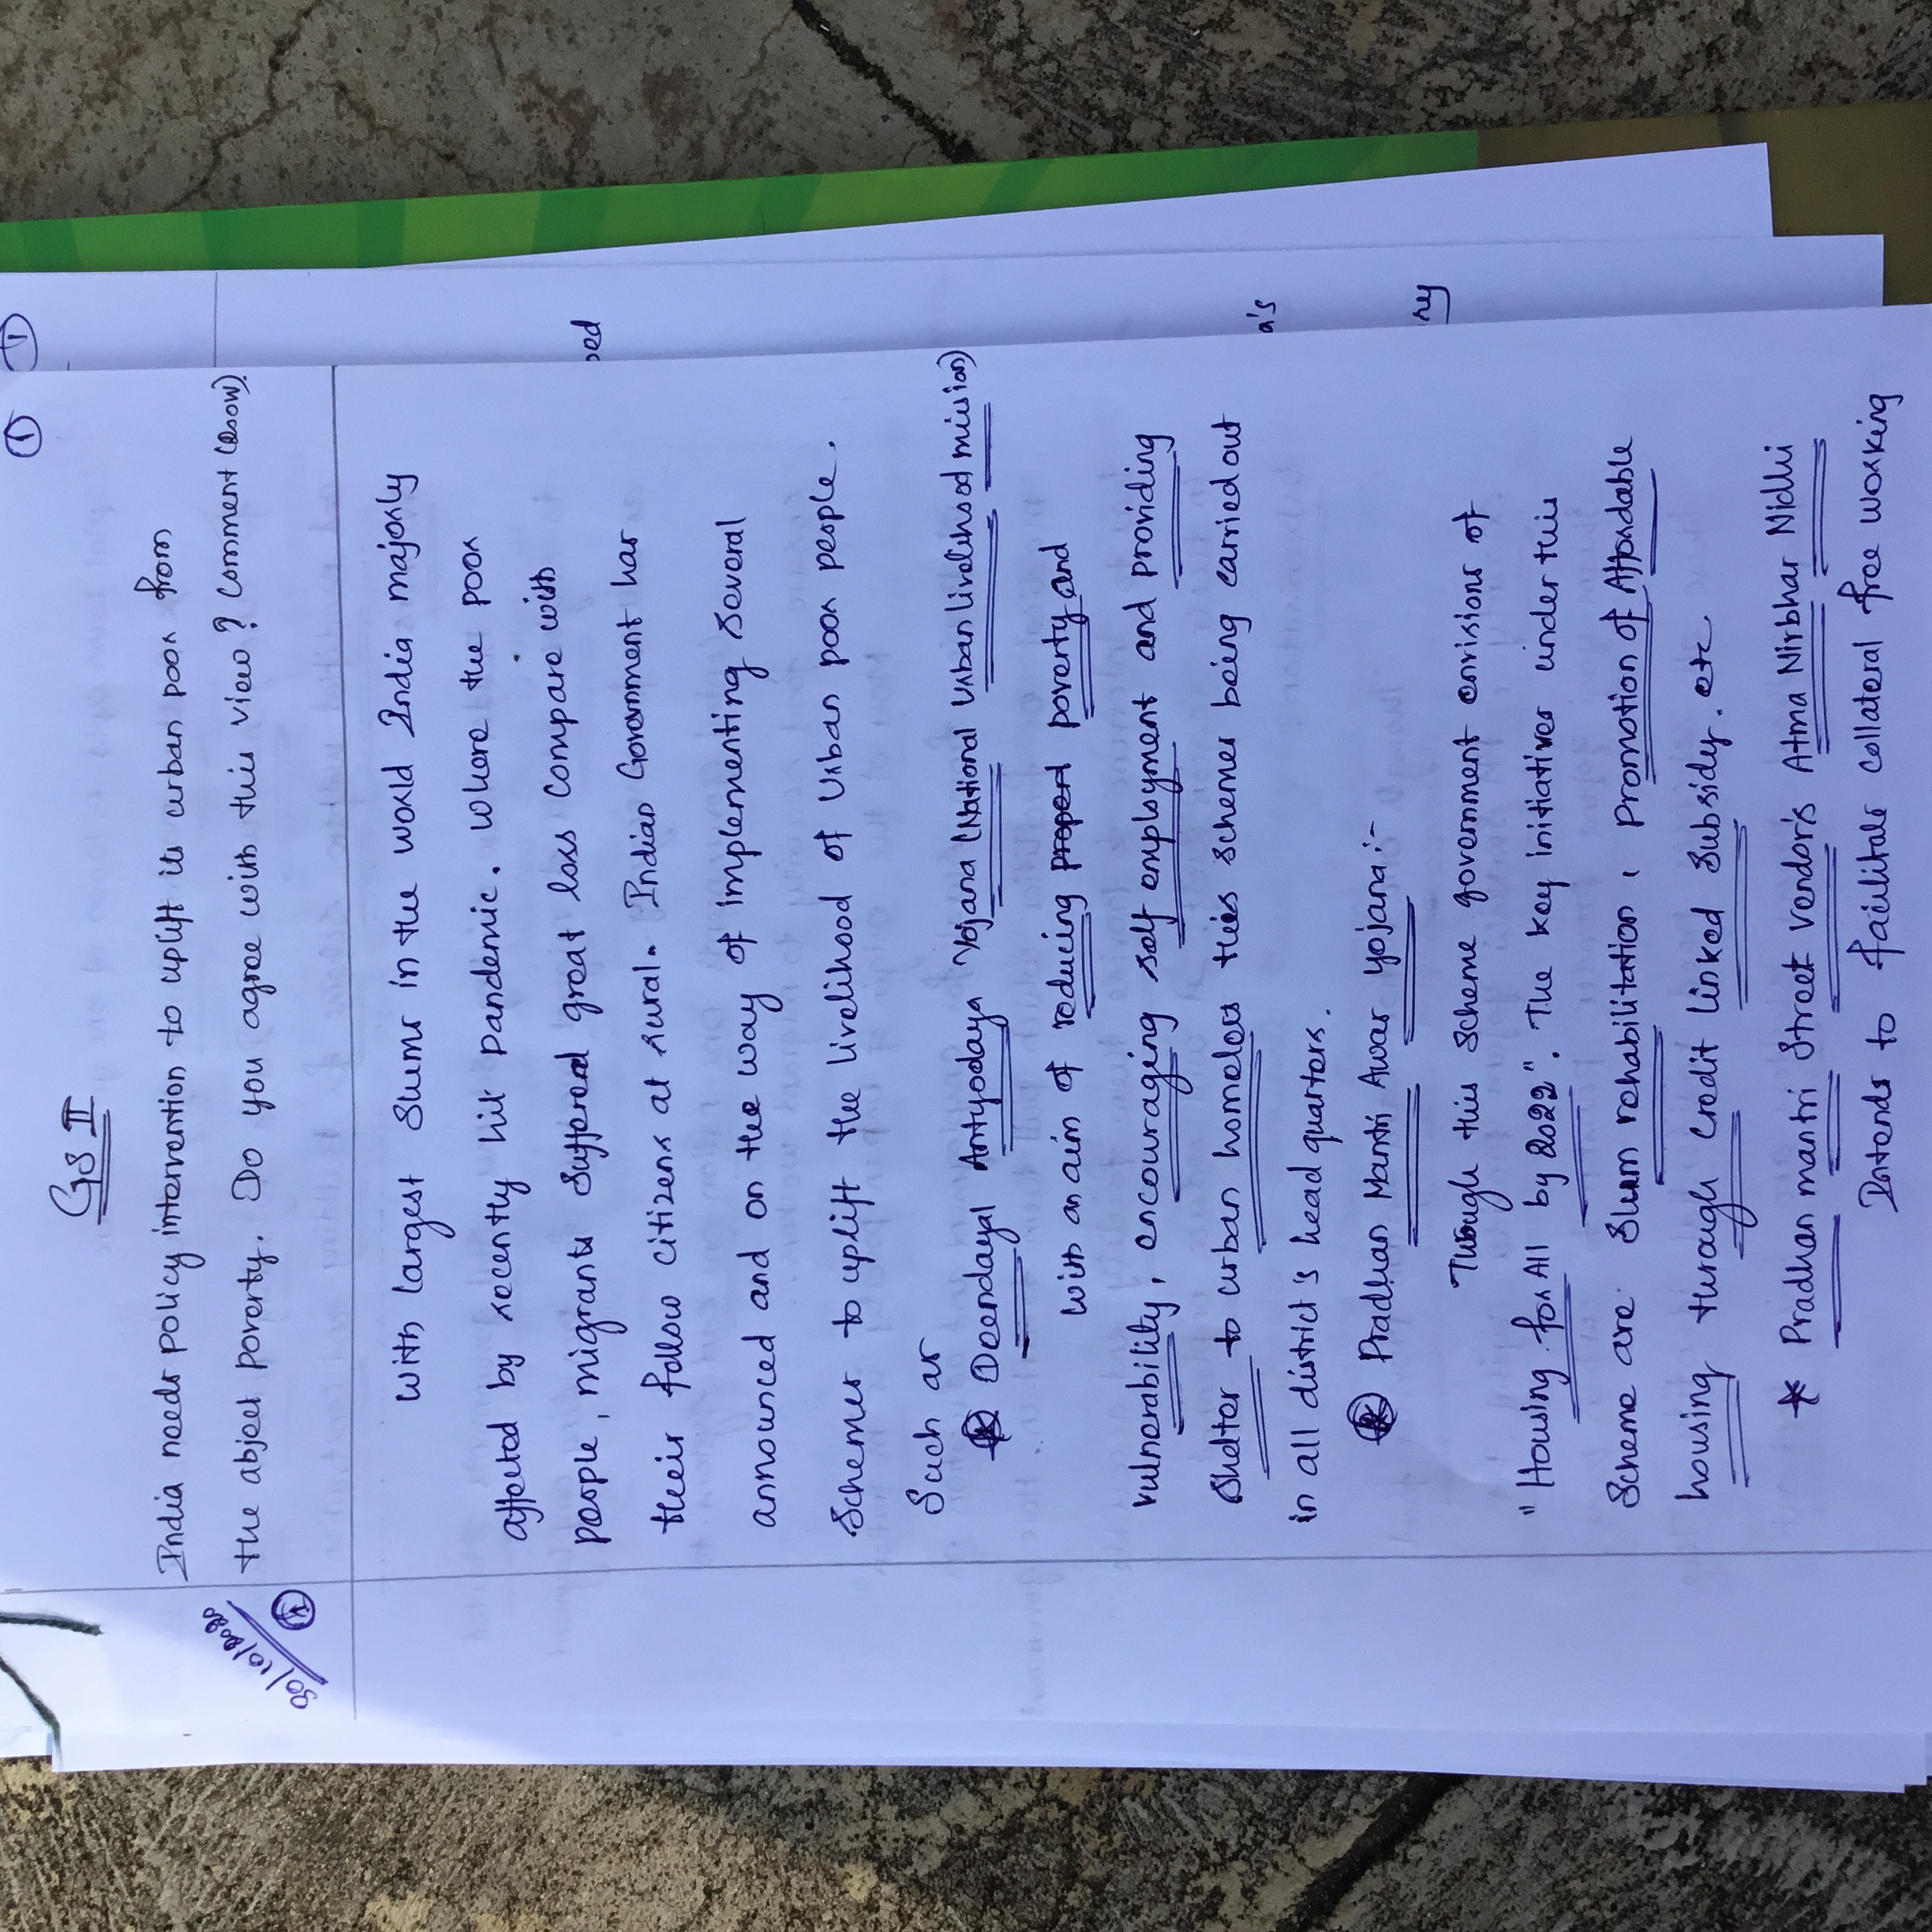 ①
GS II
30/10/2020
India needs policy intervention to uplift its urban poor from
the abject poverty. Do you agree with this view? Comment (250W)
With largest Slums in the world India majorly
affected by recently hit pandemic. where the poor
people, migrants Suffered great loss Compare with
their follow Citizens at rural. Indian Government has
announced and on the way of implementing several
Schemes to uplift the livelihood of Urban poor people.
Such as
Deendayal Antyodaya Yojana (National Urban livelihood mission)
With an aim of reducing poverty and
vulnerability, encouraging self employment and providing
Shelter to urban homeless this schemes being carried out
in all district's head quarters.
Pradhan Mantri Awas Yojana:-
Through this Scheme government envisions of
"Housing for All by 2022". The key initiatives under this
Scheme are Slum rehabilitation, Promotion of Affordable
housing through Credit linked Subsidy. etc.
* Pradhan mantri Street vendor's Atma Nirbhar Nidhi
Intends to facilitate collateral free working
①
ped
a's
ry